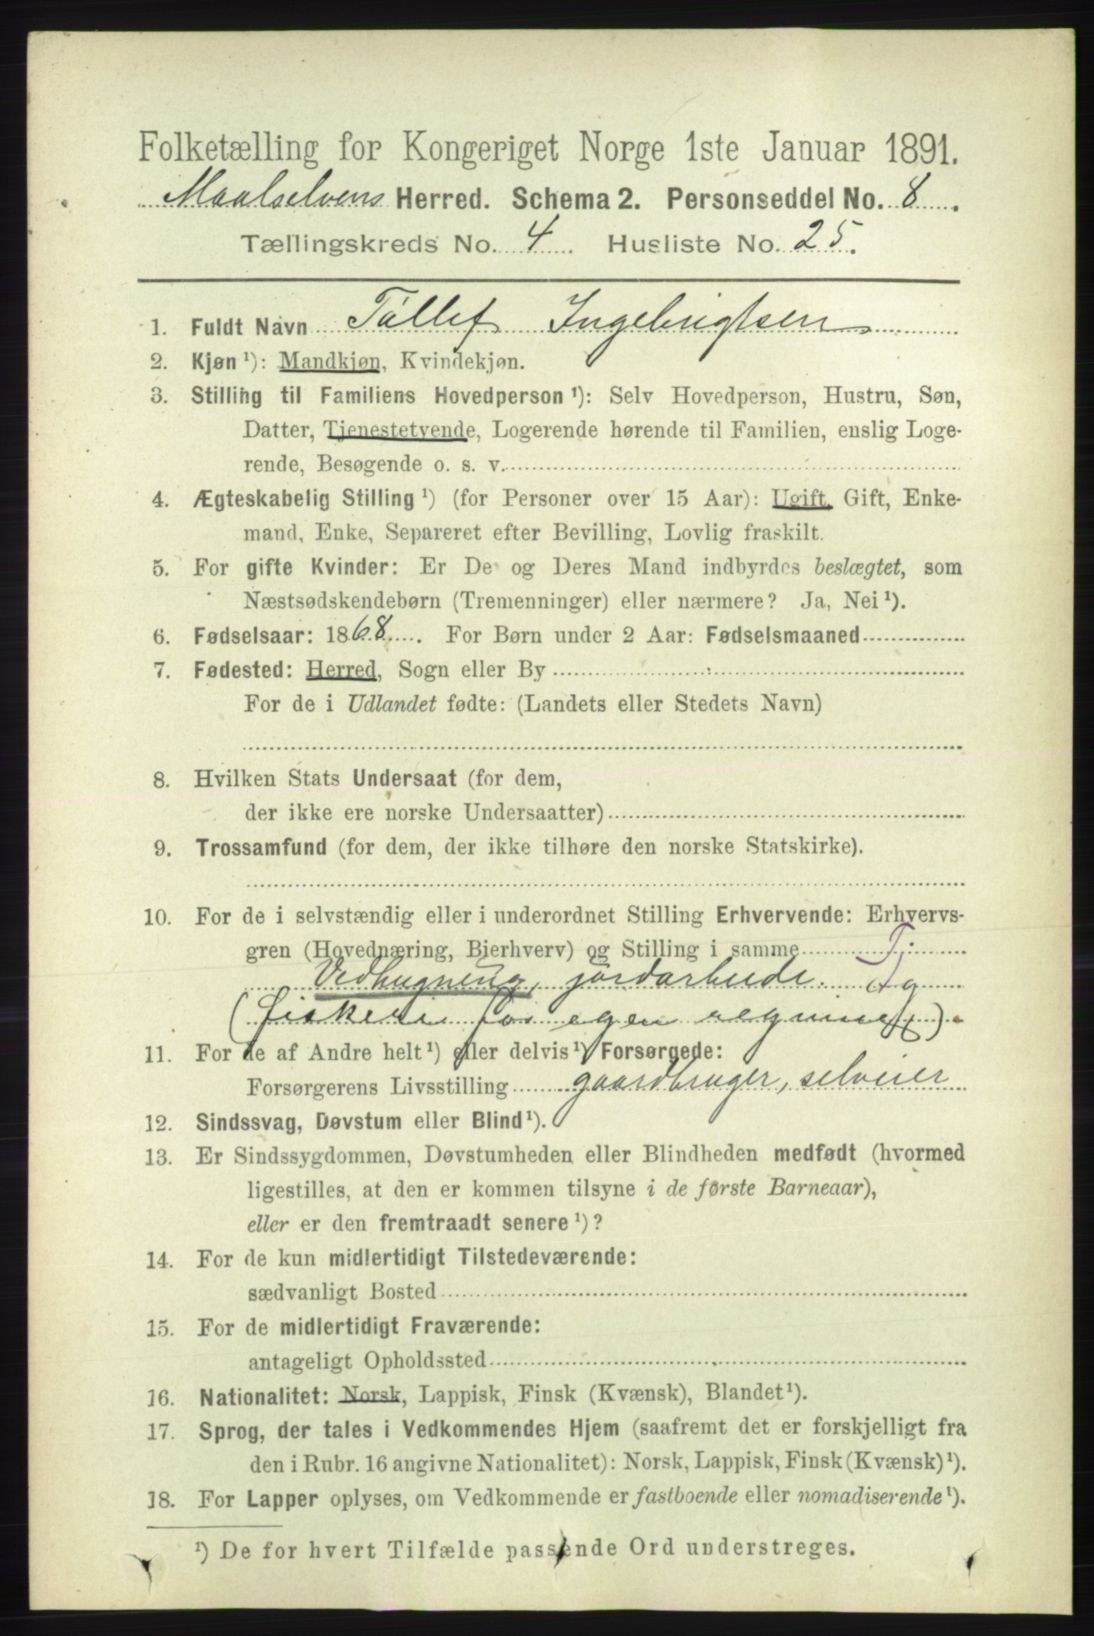 Folketælling for Kongeriget Norge 1ste Januar 1891.
Maalselvens Herred. Schema 2. Personseddel No. 8.
Tællingskreds No. 4. Husliste No. 25.
1. Fuldt Navn Tollef Ingebrigtsen
2. Kjøn ¹): Mandkjøn, Kvindekjøn.
3. Stilling til Familiens Hovedperson ¹): Selv Hovedperson, Hustru, Søn,
Datter, Tjenestetyende, Logerende hørende til Familien, enslig Loge-
rende, Besøgende o. s. v.
4. Ægteskabelig Stilling ¹) (for Personer over 15 Aar): Ugift, Gift, Enke-
mand, Enke, Separeret efter Bevilling, Lovlig fraskilt.
5. For gifte Kvinder: Er De og Deres Mand indbyrdes beslægtet, som
Næstsødskendebørn (Tremenninger) eller nærmere? Ja, Nei ¹).
6. Fødselsaar: 1868. For Børn under 2 Aar: Fødselsmaaned
7. Fødested: Herred, Sogn eller By
For de i Udlandet fødte: (Landets eller Stedets Navn)
8. Hvilken Stats Undersaat (for dem,
der ikke ere norske Undersaatter)
9. Trossamfund (for dem, der ikke tilhøre den norske Statskirke).
10. For de i selvstændig eller i underordnet Stilling Erhvervende: Erhvervs-
gren (Hovednæring, Bierhverv) og Stilling i samme Tj.
Vedhugning, jordarbeide.
(fiskeri for egen regning).
11. For de af Andre helt ¹) eller delvis ¹) Forsørgede:
Forsørgerens Livsstilling gaardbruger, selveier
12. Sindssvag, Døvstum eller Blind ¹).
13. Er Sindssygdommen, Døvstumheden eller Blindheden medfødt (hvormed
ligestilles, at den er kommen tilsyne i de første Barneaar),
eller er den fremtraadt senere ¹)?
14. For de kun midlertidigt Tilstedeværende:
sædvanligt Bosted
15. For de midlertidigt Fraværende:
antageligt Opholdssted
16. Nationalitet: Norsk, Lappisk, Finsk (Kvænsk), Blandet ¹).
17. Sprog, der tales i Vedkommendes Hjem (saafremt det er forskjelligt fra
den i Rubr. 16 angivne Nationalitet): Norsk, Lappisk, Finsk (Kvænsk) ¹).
18. For Lapper oplyses, om Vedkommende er fastboende eller nomadiserende ¹).
¹) De for hvert Tilfælde passende Ord understreges.